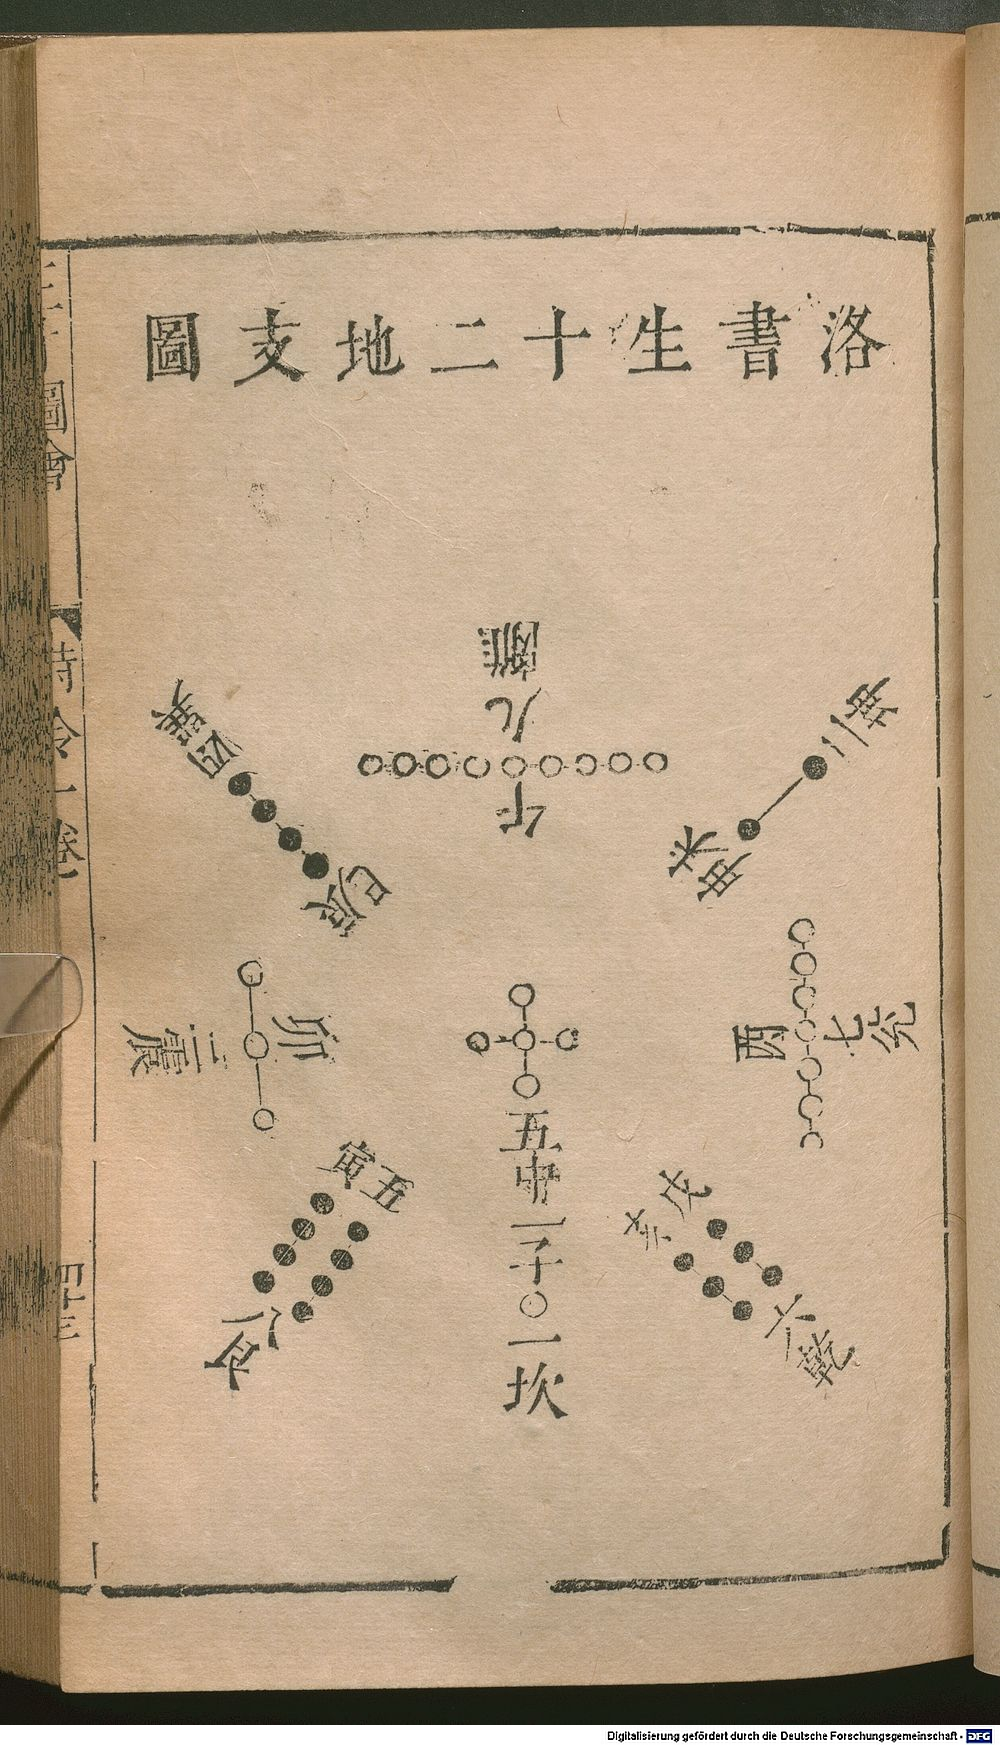 洛書生十二地支圖
離九
午
坤二
未申
巽四
辰巳
兌七
酉
震三
卯
五中
一子
一坎
戌亥
六乾
寅丑
八艮
圖會
時令一卷
四十三